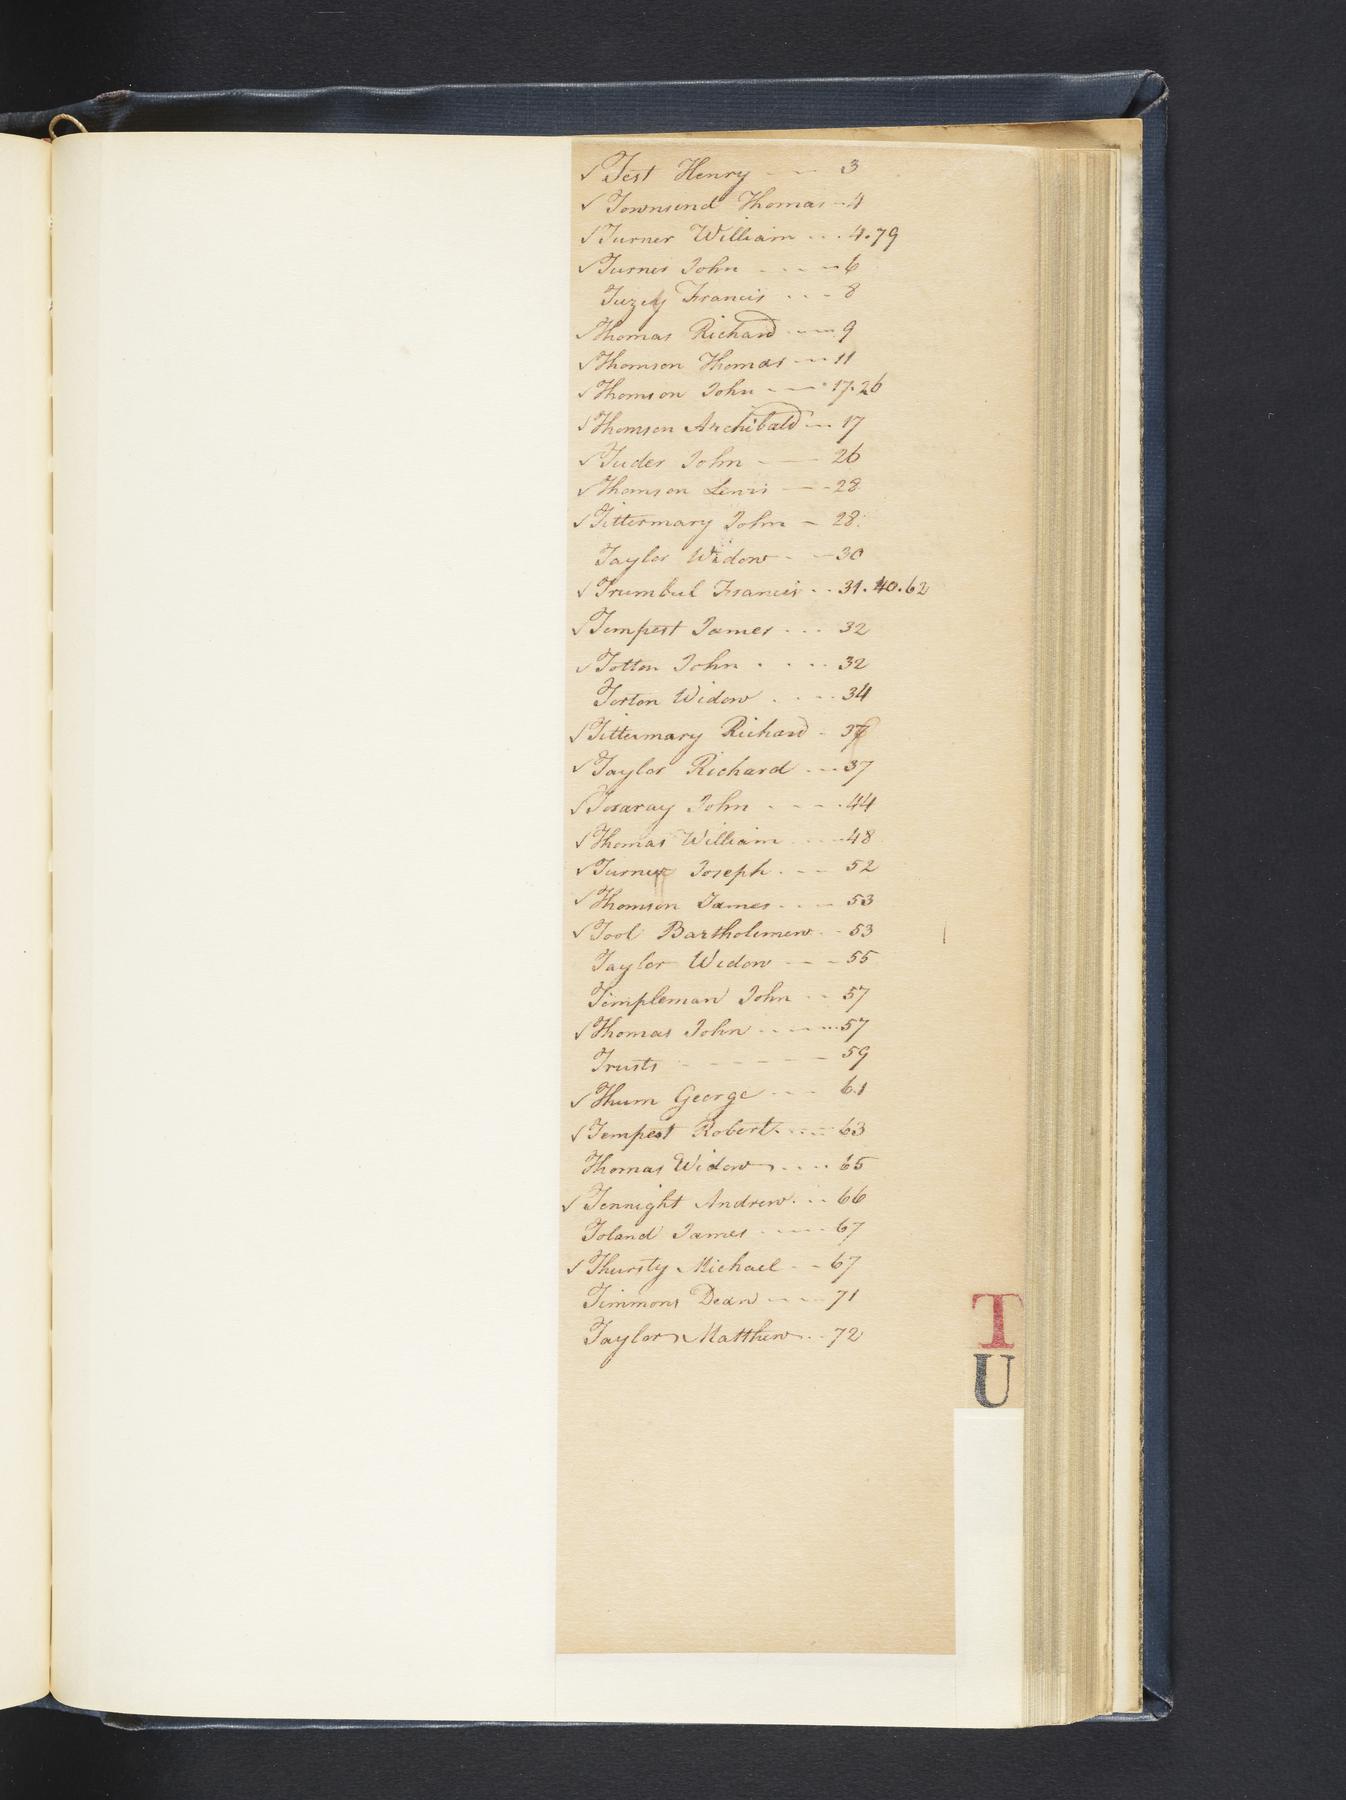 ✓ Test Henry - - - 3
✓ Townsend Thomas - 4
✓ Turner William - - - 4.79
✓ Turner John - - - - 6
Tuzey Francis - - - 8
✓ Thomas Richard - - - 9
✓ Thomson Thomas - - - 11
✓ Thomson John - - - 17.26
✓ Thomson Archibald - - - 17
✓ Tuder John - - - 26
✓ Thomson Lewis - - - 28
✓ Tittermary John - 28
Taylor Widow - - - 30
✓ Trumbul Francis - - 31.40.62
✓ Tempest James - - - 32
✓ Totton John - - - - 32
Torton Widow - - - - 34
✓ Tittermary Richard - 37
✓ Taylor Richard - - - 37
✓ John - - - - 44
✓ Thomas William - - - - 48
✓ Turner Joseph - - - 52
✓ Thomson James - - - 53
✓ Tool Bartholemew - - 53
Taylor Widow - - - 55
Templeman John - - 57
✓ Thomas John - - - - 57
Trusts - - - - - - 59
✓ Thum George - - - 61
✓ Tempest Robert - - - - 63
Thomas Widow - - - - 65
✓ Tennight Andrew - - - 66
Toland James - - - - 67
✓ Thursty Michael - - 67
Timmons Dean - - - - 71
Taylor Matthew - - 72
T
U